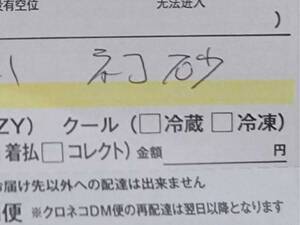 没有空位 无法进入
)
ネコ砂
ZY) クール (□冷蔵 □冷凍)
着払□コレクト) 金額 円
お届け先以外への配達は出来ません
便 ※クロネコDM便の再配達は翌日以降となります